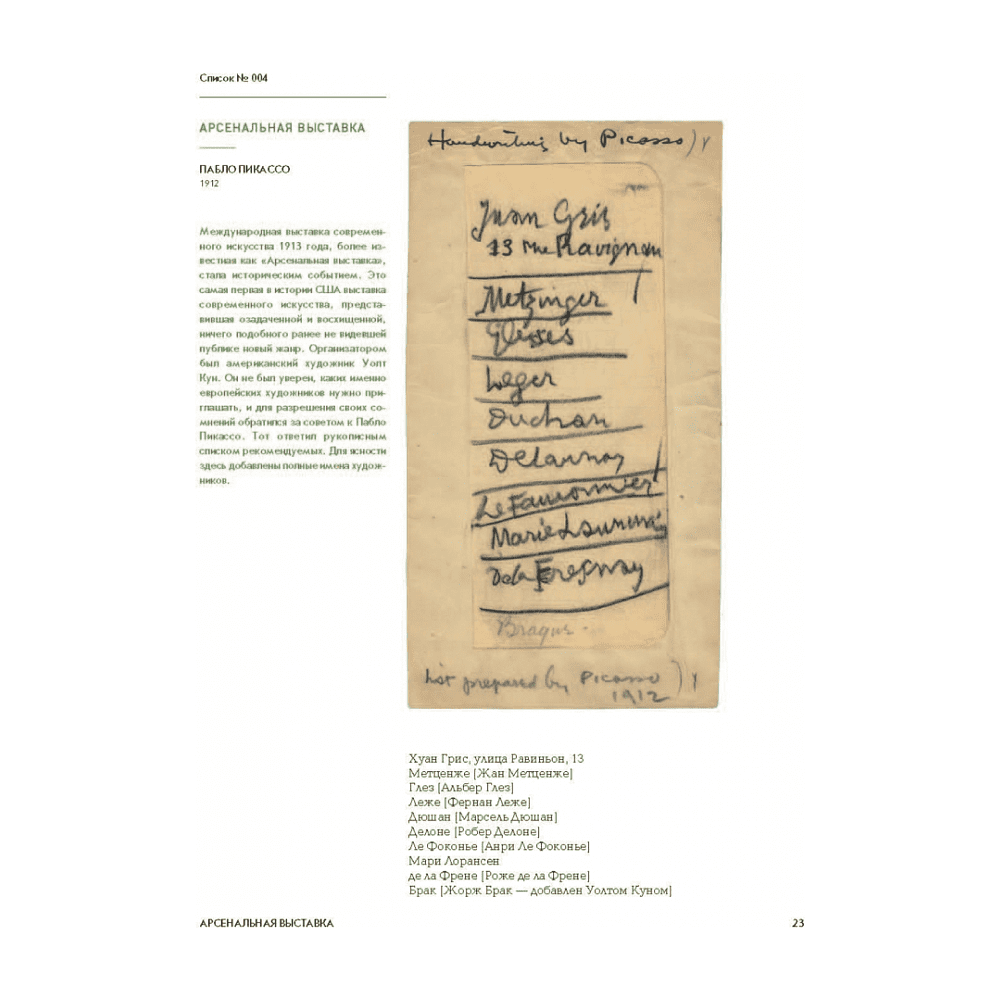 Список № 004
АРСЕНАЛЬНАЯ ВЫСТАВКА
ПАБЛО ПИКАССО
1912
Международная выставка современ-
ного искусства 1913 года, более из-
вестная как «Арсенальная выставка»,
стала историческим событием. Это
самая первая в истории США выставка
современного искусства, предста-
вившая озадаченной и восхищенной,
ничего подобного ранее не видевшей
публике новый жанр. Организатором
был американский художник Уолт
Кун. Он не был уверен, каких именно
европейских художников нужно при-
глашать, и для разрешения своих со-
мнений обратился за советом к Пабло
Пикассо. Тот ответил рукописным
списком рекомендуемых. Для ясности
здесь добавлены полные имена худож-
ников.
Handwriting by Picasso)
Juan Gris
13 rue Ravignan
Metzinger
Gleises
Leger
Duchan
Delaunay
Le Fauconnier
Marie Laurencin
De la Fresnay
Braque
List prepared by Picasso)
1912
Хуан Грис, улица Равиньон, 13
Метценже [Жан Метценже]
Глез [Альбер Глез]
Леже [Фернан Леже]
Дюшан [Марсель Дюшан]
Делоне [Робер Делоне]
Ле Фоконье [Анри Ле Фоконье]
Мари Лорансен
де ла Френе [Роже де ла Френе]
Брак [Жорж Брак — добавлен Уолтом Куном]
АРСЕНАЛЬНАЯ ВЫСТАВКА
23